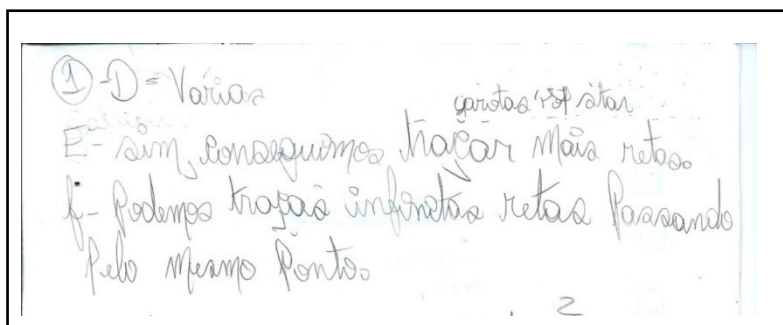 1-D = Varias
E- sim, conseguimos traçar mais retas.
f- Podemos traças infinitas retas Passando
Pelo mesmo Ponto.
2